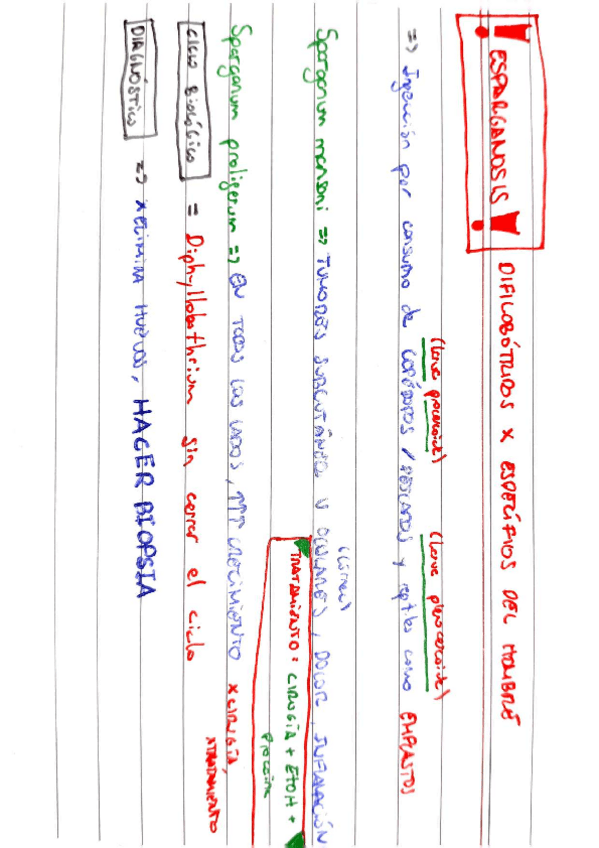 ! ESPARGANOSIS ! DIFILOBÓTRIDOS X ESPECÍFICOS DEL HOMBRE
(larva procercoide) (larva plerocercoide)
=> Ingestión por consumo de COPÉPODOS / PESCADOS y reptiles como EMPLASTOS
(larvas)
Sparganum mansoni => TUMORES SUBCUTÁNEOS U OCULARES, DOLOR, INFLAMACIÓN
TRATAMIENTO = CIRUGÍA + ETOH + procaína
Sparganum proligerum => EN TODOS LOS LADOS, ↑↑↑ CRECIMIENTO X CIRUGÍA, XTRATAMIENTO
CICLO BIOLÓGICO = Diphyllobothrium sin cerrar el ciclo
DIAGNÓSTICO => X ELIMINA HUEVOS, HACER BIOPSIA